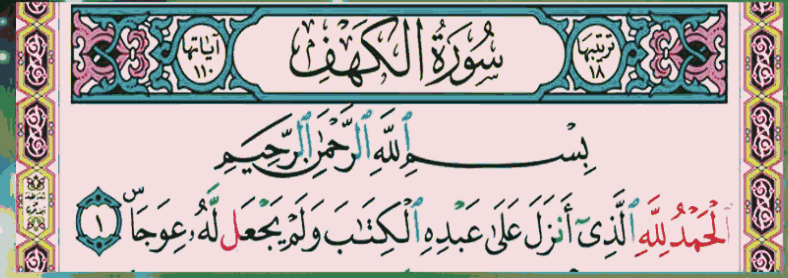 ترتيبها ١٨ سُورَةُ الْكَهْفِ آياتها ١١٠
بِسْمِ ٱللَّهِ ٱلرَّحْمَٰنِ ٱلرَّحِيمِ
ٱلْحَمْدُ لِلَّهِ ٱلَّذِىٓ أَنزَلَ عَلَىٰ عَبْدِهِ ٱلْكِتَٰبَ وَلَمْ يَجْعَل لَّهُۥ عِوَجَاۜ ١